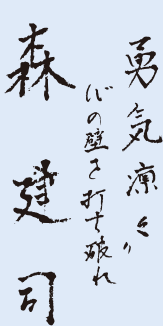 勇気凛々
心の壁を打ち破れ
森建司